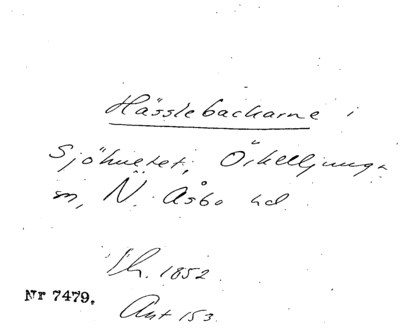 Hässlebackarne i
Sjöhuset, Örkelljunga
sn, N. Åsbo hd
Sk. 1852
Nr 7479.
Ant 153